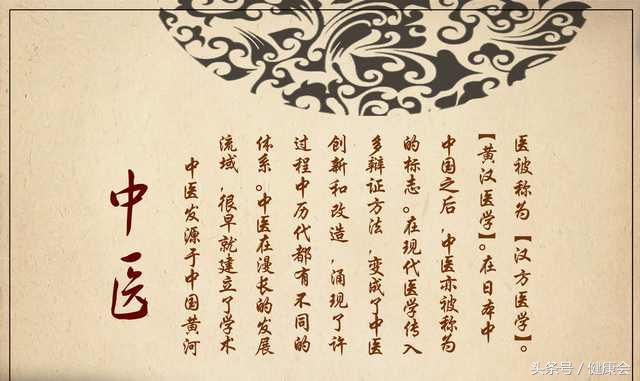 中医
中医发源于中国黄河
流域,很早就建立了学术
体系。中医在漫长的发展
过程中历代都有不同的
创新和改造,涌现了许
多辩证方法,变成了中医
的标志。在现代医学传入
中国之后,中医亦被称为
【黄汉医学】。在日本中
医被称为【汉方医学】。
头条号 / 健康会